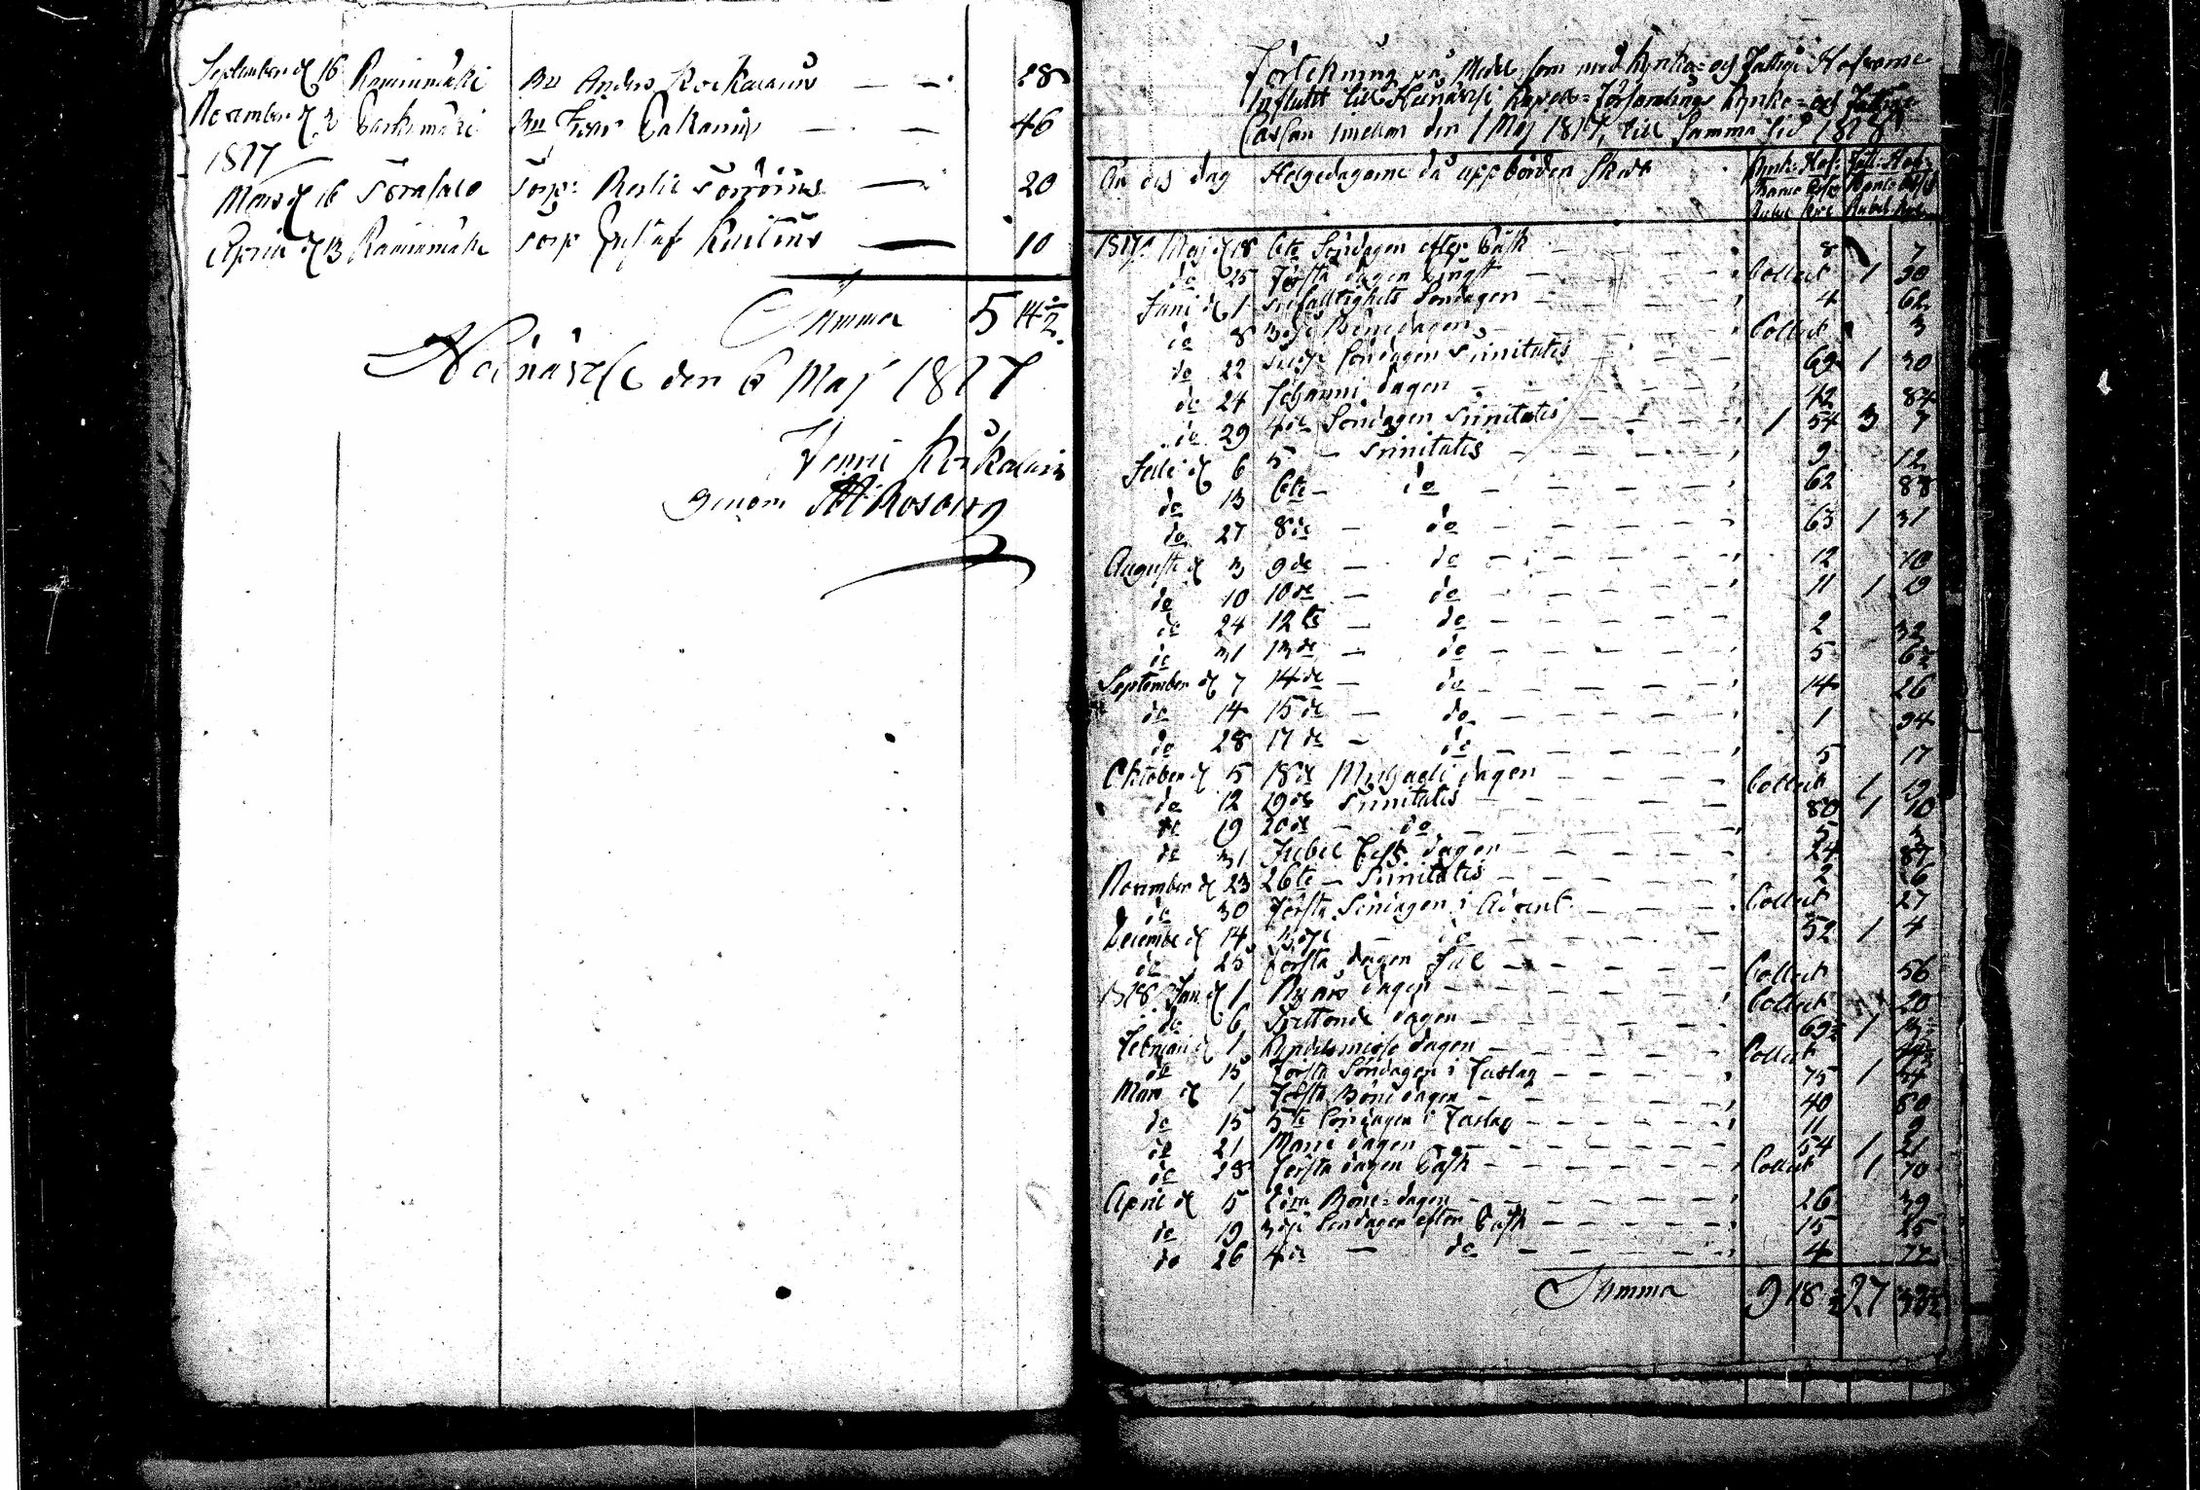 September d 16 Rauninmäki Bn Anders Kockarainen — — 28
November d 3 Parkumäki Bn Ivar Pakarin — — 46
1817
Mars d 16 Soensalo Torp: — 20
April d 13 Rauninmäki Torp Gustaf Kuitin — 10
Summa 5 14½
Heinäwesi den 6 Maj 1817
Henric Kockarain
genom AH Rosberg
Förtekning på Medel, som med Kyrkio- och Fattige Hofvarne
Influtit till Heinäwesi Capell-Församlings Kyrko- och Fattige
Cassan imellan den 1 Maj 1817, till Samma tid 1818
År och dag Helgedagarne då uppbörden Skedt Kyrk: Hof: Fatt: Hof:
Rubel Kop Rubel Kop
1817 Maj d 18 6te Söndagen efter Påsk — 8 7
do 25 Första dagen Pingst — Collect 1 30
Juni d 1 Trefaldighets Söndagen — 4 62
do 8 3dje Bönedagen — Collect 3
do 22 3dje Söndagen Trinitatis — 69 1 30
do 24 Johanni dagen — 42 84
do 29 4de Söndagen Trinitatis — 1 54 3 7
Julii d 6 5 — Trinitatis — 9 12
do 13 6te — do — 62 88
do 27 8de — do — 63 1 31
Augusti d 3 9de — do — 12 10
do 10 10de — do — 11 1 19
do 24 12te — do — 2 32
do 31 13de — do — 5 62
September d 7 14de — do — 14 26
do 14 15de — do — 1 94
do 28 17de — do — 5 17
October d 5 18de Michaeli dagen — Collect 1 19
do 12 19de Trinitatis — 80 1 10
do 19 20de — do — 5 3
do 31 Jubel Fest dagen — 24 87
November d 23 26te — Trinitatis — 2 26
do 30 Första Söndagen i Advent — Collect 27
December d 14 3dje — do — 52 1 4
do 25 Första dagen Jul — Collect 56
1818 Jan d 1 Nyårs dagen — Collect 20
do 6 Trettonde dagen — 69½ 1
Februari d 1 Kyndelsmesso dagen — Collect
do 15 Första Söndagen i Fastlag — 75 1 54
Mars d 1 Första Böne dagen — 40 80
do 15 5te Söndagen i Fastlag — 11 9
do 21 Marie dagen — 54 1 21
do 28 Första dagen Påsk — Collect 1 70
April d 5 2dra Böne-dagen — 26 39
do 19 3dje Söndagen efter Påsk — 15 25
do 26 4de — do — 4 77
Summa 9 18½ 27